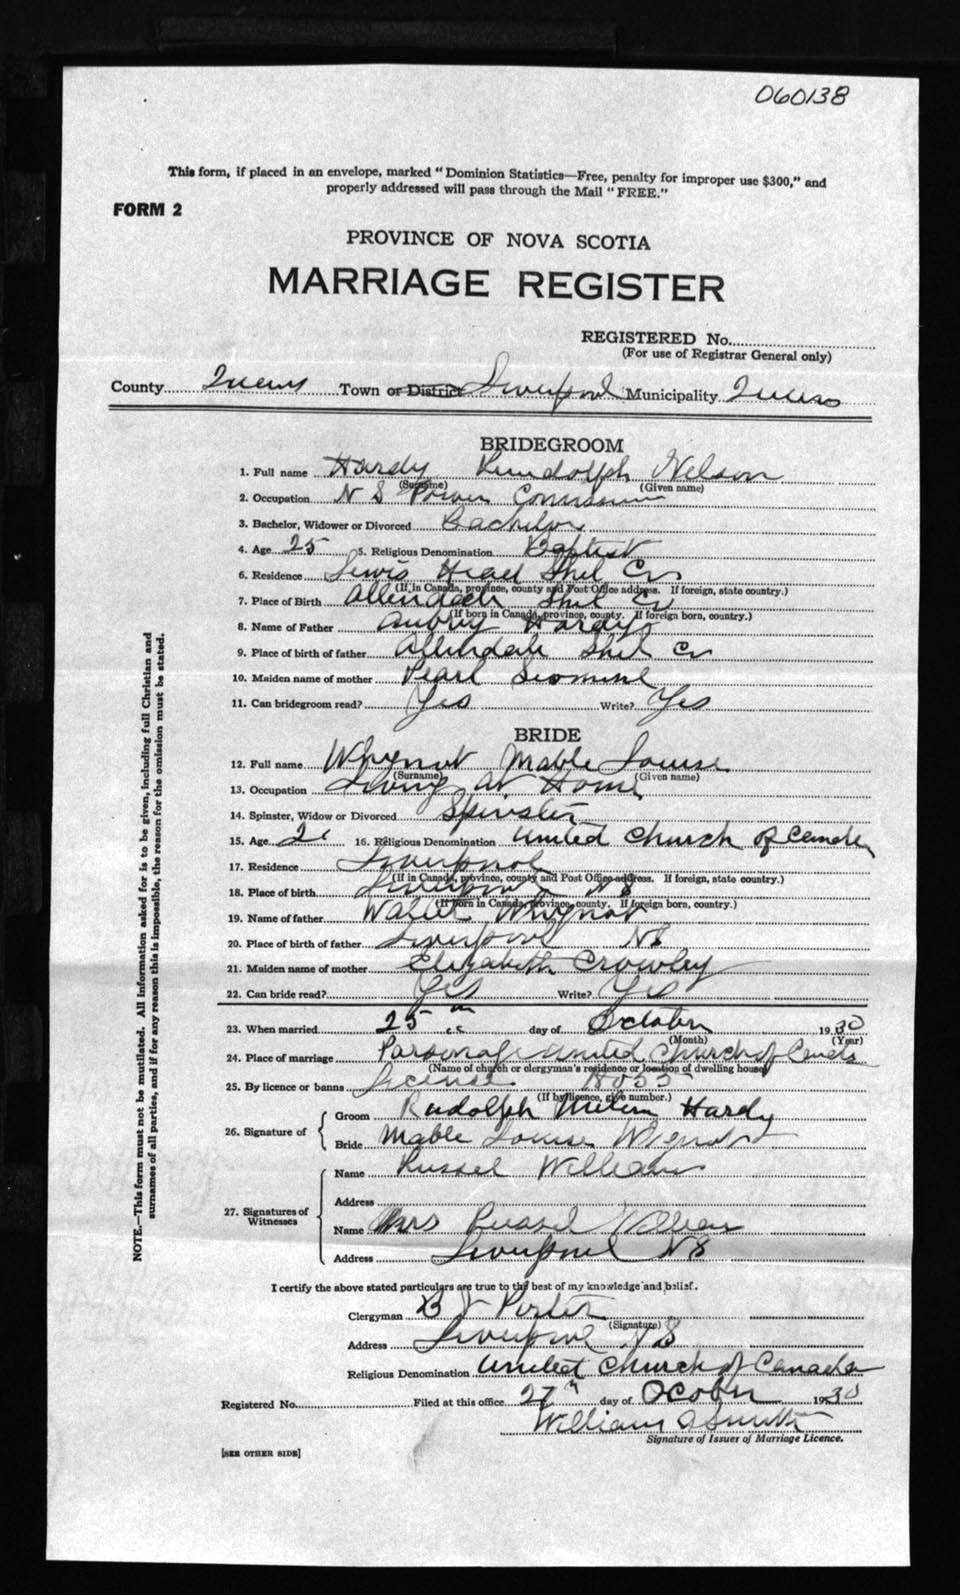 060138
This form, if placed in an envelope, marked "Dominion Statistics—Free, penalty for improper use $300," and
properly addressed will pass through the Mail "FREE."
FORM 2
PROVINCE OF NOVA SCOTIA
MARRIAGE REGISTER
REGISTERED No.
(For use of Registrar General only)
County Queens Town or District Liverpool Municipality Queens
BRIDEGROOM
1. Full name Hardy Rundolph Nelson
(Surname) (Given name)
2. Occupation N S Power Commission
3. Bachelor, Widower or Divorced Bachelor
4. Age 25 5. Religious Denomination Baptist
6. Residence Lewis Head Shel Co
(If in Canada, province, county and Post Office address. If foreign, state country.)
7. Place of Birth Allendale Shel Co
(If born in Canada, province, county. If foreign born, country.)
8. Name of Father Aubry Hardy
9. Place of birth of father Allendale Shel Co
10. Maiden name of mother Pearl
11. Can bridegroom read? Yes Write? Yes
BRIDE
12. Full name Whynot Mable Louise
(Surname) (Given name)
13. Occupation Living at Home
14. Spinster, Widow or Divorced Spinster
15. Age 16. Religious Denomination United Church of Canada
17. Residence Liverpool
(If in Canada, province, county and Post Office address. If foreign, state country.)
18. Place of birth Liverpool NS
(If born in Canada, province, county. If foreign born, country.)
19. Name of father Walter Whynot
20. Place of birth of father Liverpool NS
21. Maiden name of mother Elizabeth Crowley
22. Can bride read? Yes Write? Yes
23. When married 25th day of October 1930
(Month) (Year)
24. Place of marriage Parsonage United Church of Canada
(Name of church or clergyman's residence or location of dwelling house)
25. By licence or banns License 18055
(If by licence, give number.)
26. Signature of
Groom Rudolph Hardy
Bride Mable Louise Whynot
27. Signatures of Witnesses
Name Russel Williams
Address
Name Mrs Russel Williams
Address Liverpool NS
I certify the above stated particulars are true to the best of my knowledge and belief.
Clergyman B J Porter
(Signature)
Address Liverpool NS
Religious Denomination United Church of Canada
Registered No. Filed at this office 27th day of October 1930
William A Smith
Signature of Issuer of Marriage Licence.
[SEE OTHER SIDE]
NOTE.—This form must not be mutilated. All information asked for is to be given, including full Christian and
surnames of all parties, and if for any reason this is impossible, the reason for the omission must be stated.